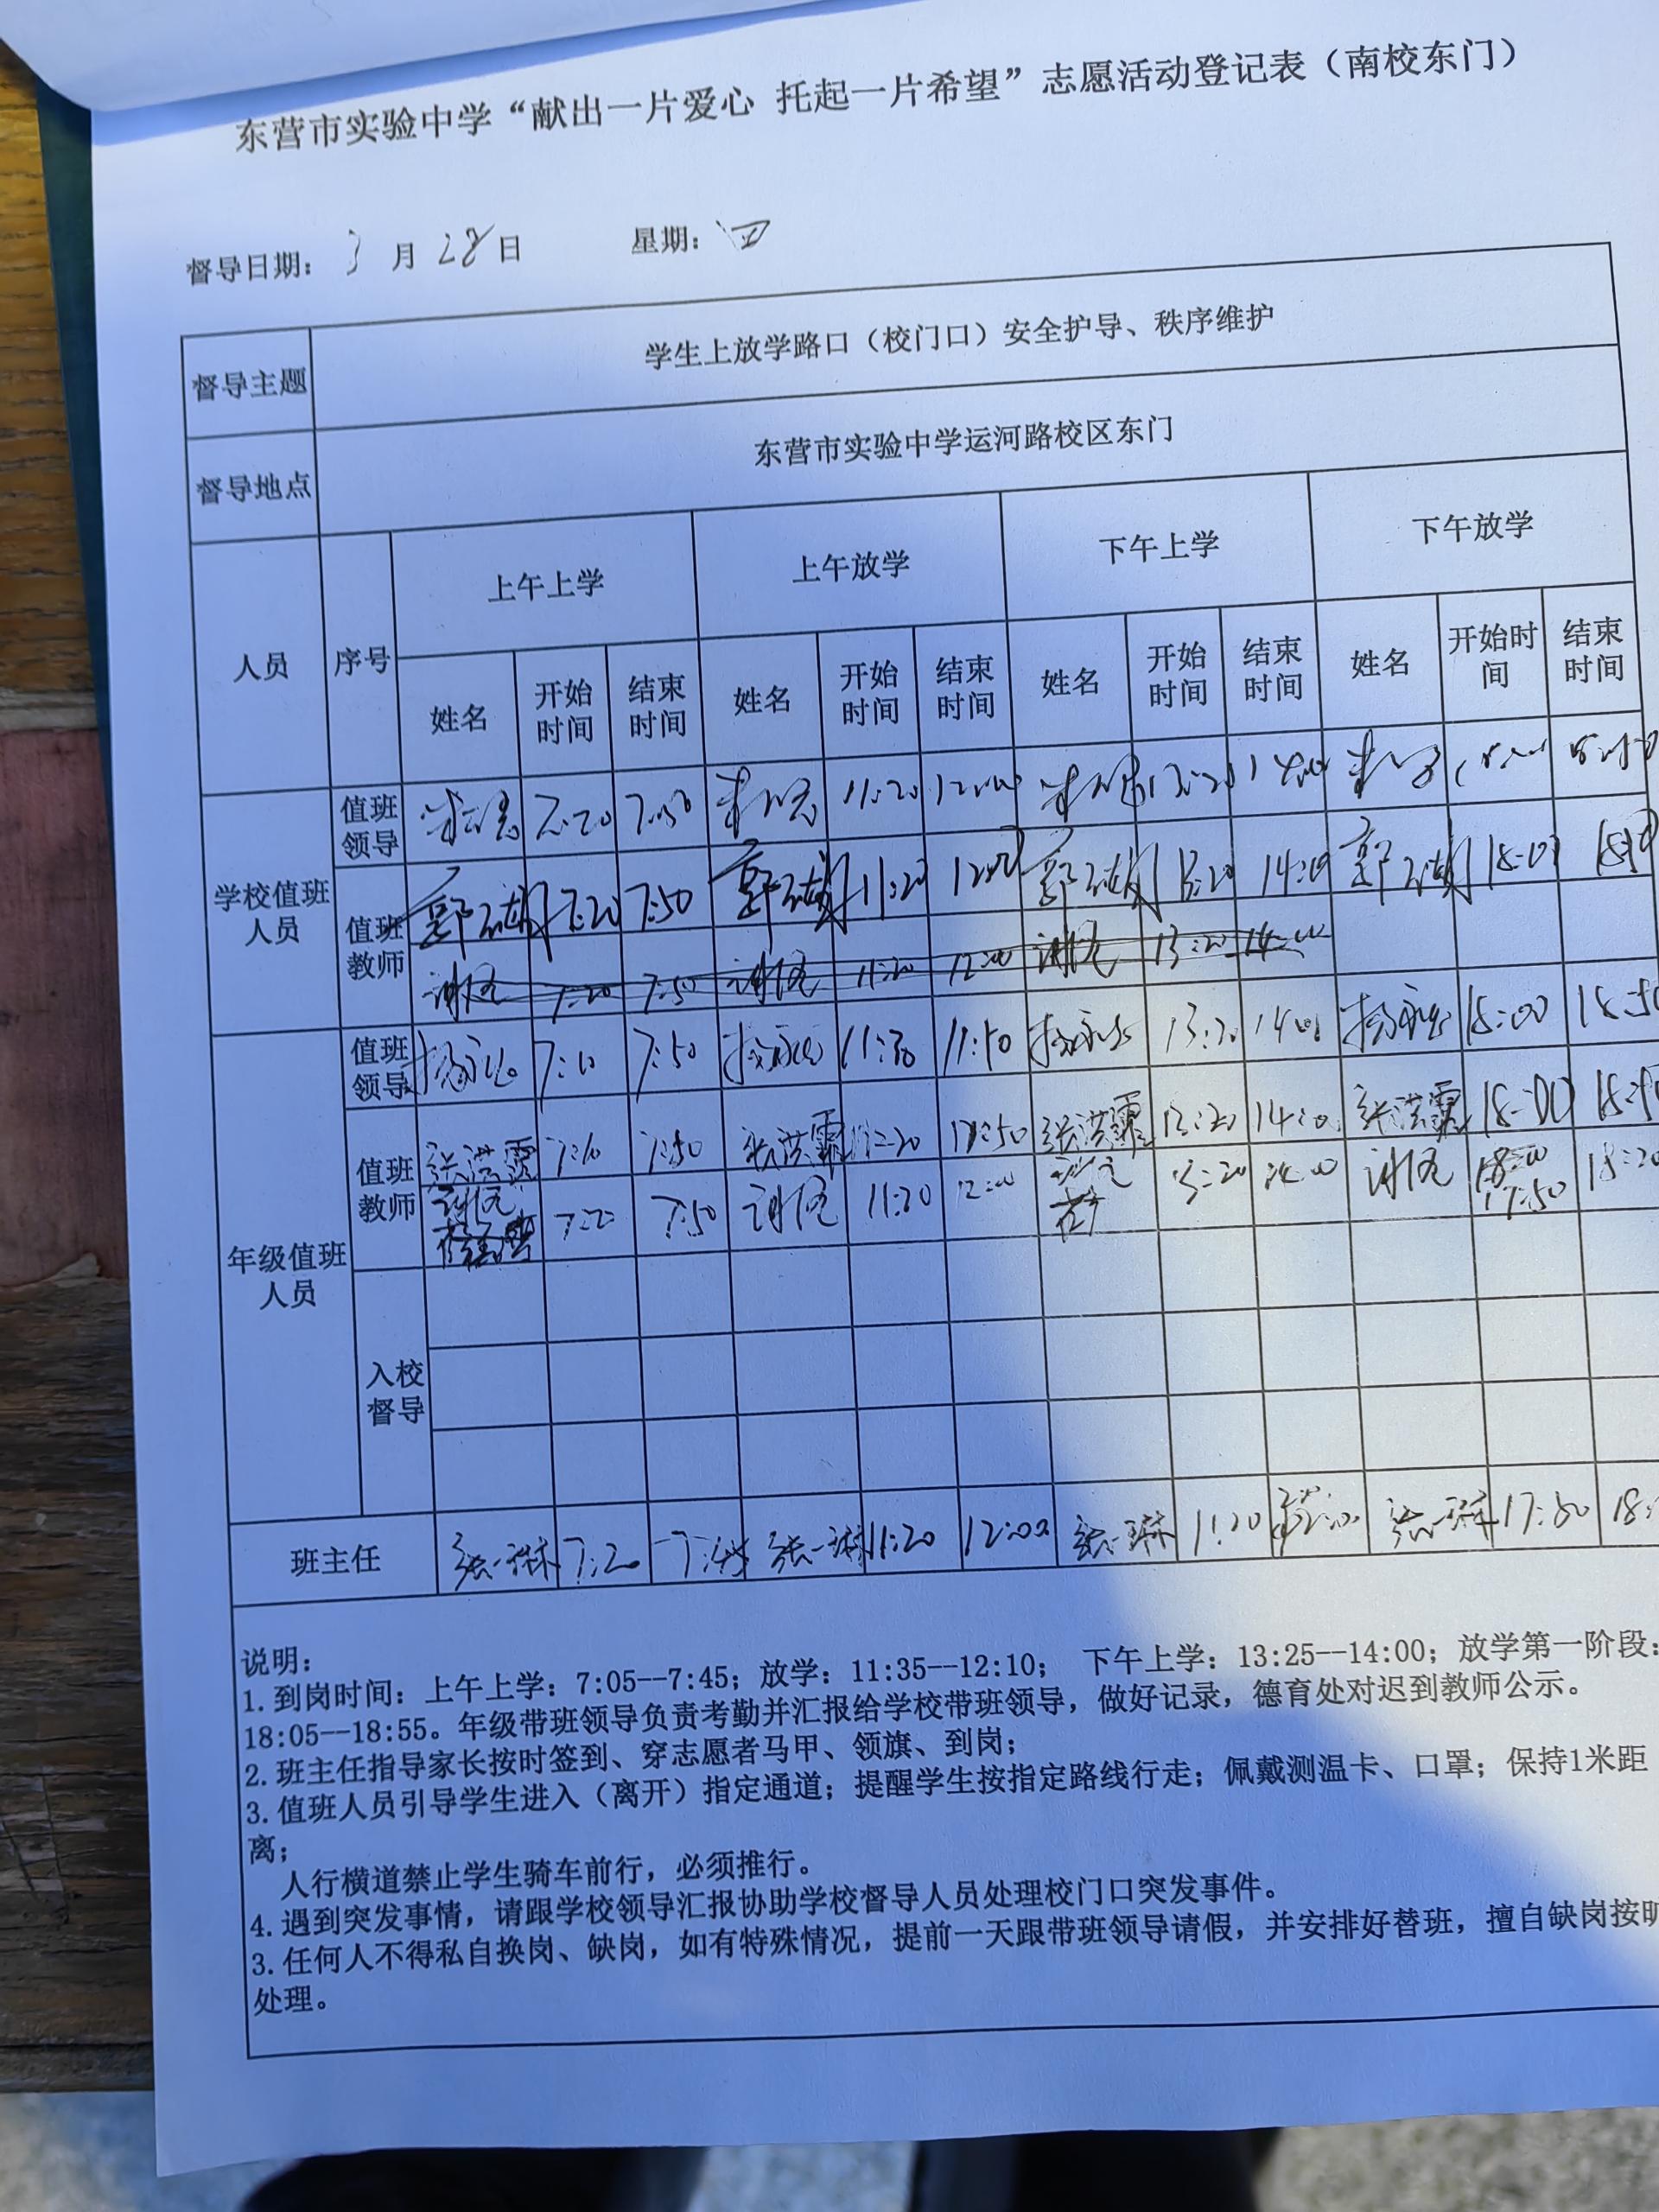 东营市实验中学“献出一片爱心 托起一片希望”志愿活动登记表（南校东门）
督导日期： 3 月 28 日 星期：四
督导主题 学生上放学路口（校门口）安全护导、秩序维护
督导地点 东营市实验中学运河路校区东门
人员 序号 上午上学 上午放学 下午上学 下午放学
姓名 开始时间 结束时间 姓名 开始时间 结束时间 姓名 开始时间 结束时间 姓名 开始时间 结束时间
学校值班人员 值班领导 7:20 7:50 11:20 12:00 13:20 14:00
值班教师 7:20 7:50 11:20 12:00 13:20 14:00 18:00
7:20 7:50 11:20 12:00 13:20 14:00
年级值班人员 值班领导 7:10 7:50 11:50 14:00 18:00 18:50
值班教师 张洪霞 7:10 7:50 张洪霞 11:20 11:50 张洪霞 13:20 14:00 张洪霞 18:00
7:20 7:50 12:00 13:20 14:00 17:50 18:20
入校督导
班主任 张一琳 7:20 张一琳 11:20 12:00 张一琳 张一琳 17:50
说明：
1.到岗时间：上午上学：7:05--7:45；放学：11:35--12:10； 下午上学：13:25--14:00；放学第一阶段：
18:05--18:55。年级带班领导负责考勤并汇报给学校带班领导，做好记录，德育处对迟到教师公示。
2.班主任指导家长按时签到、穿志愿者马甲、领旗、到岗；
3.值班人员引导学生进入（离开）指定通道；提醒学生按指定路线行走；佩戴测温卡、口罩；保持1米距
离；
人行横道禁止学生骑车前行，必须推行。
4.遇到突发事情，请跟学校领导汇报协助学校督导人员处理校门口突发事件。
3.任何人不得私自换岗、缺岗，如有特殊情况，提前一天跟带班领导请假，并安排好替班，擅自缺岗按
处理。